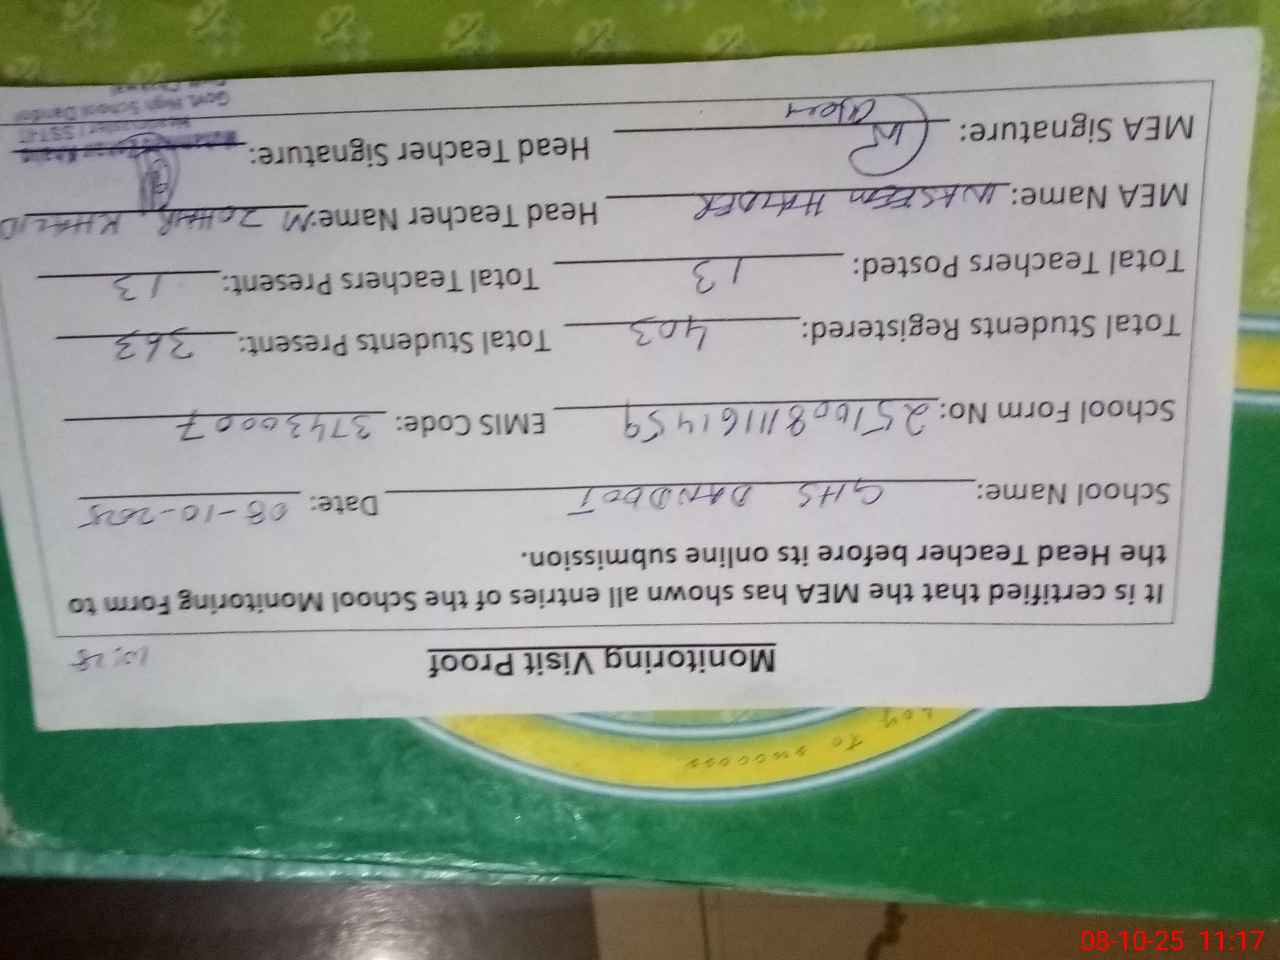 Monitoring Visit Proof
It is certified that the MEA has shown all entries of the School Monitoring Form to
the Head Teacher before its online submission.
School Name: GHS DANDOOT Date: 08-10-2025
School Form No: 251008111161459 EMIS Code: 37430007
Total Students Registered: 403 Total Students Present: 363
Total Teachers Posted: 13 Total Teachers Present: 13
MEA Name: WASEEM HAIDER Head Teacher Name: M ZOHAIB KHALID
MEA Signature: Head Teacher Signature:
Govt. High School Dandot
to success
08-10-25 11:17